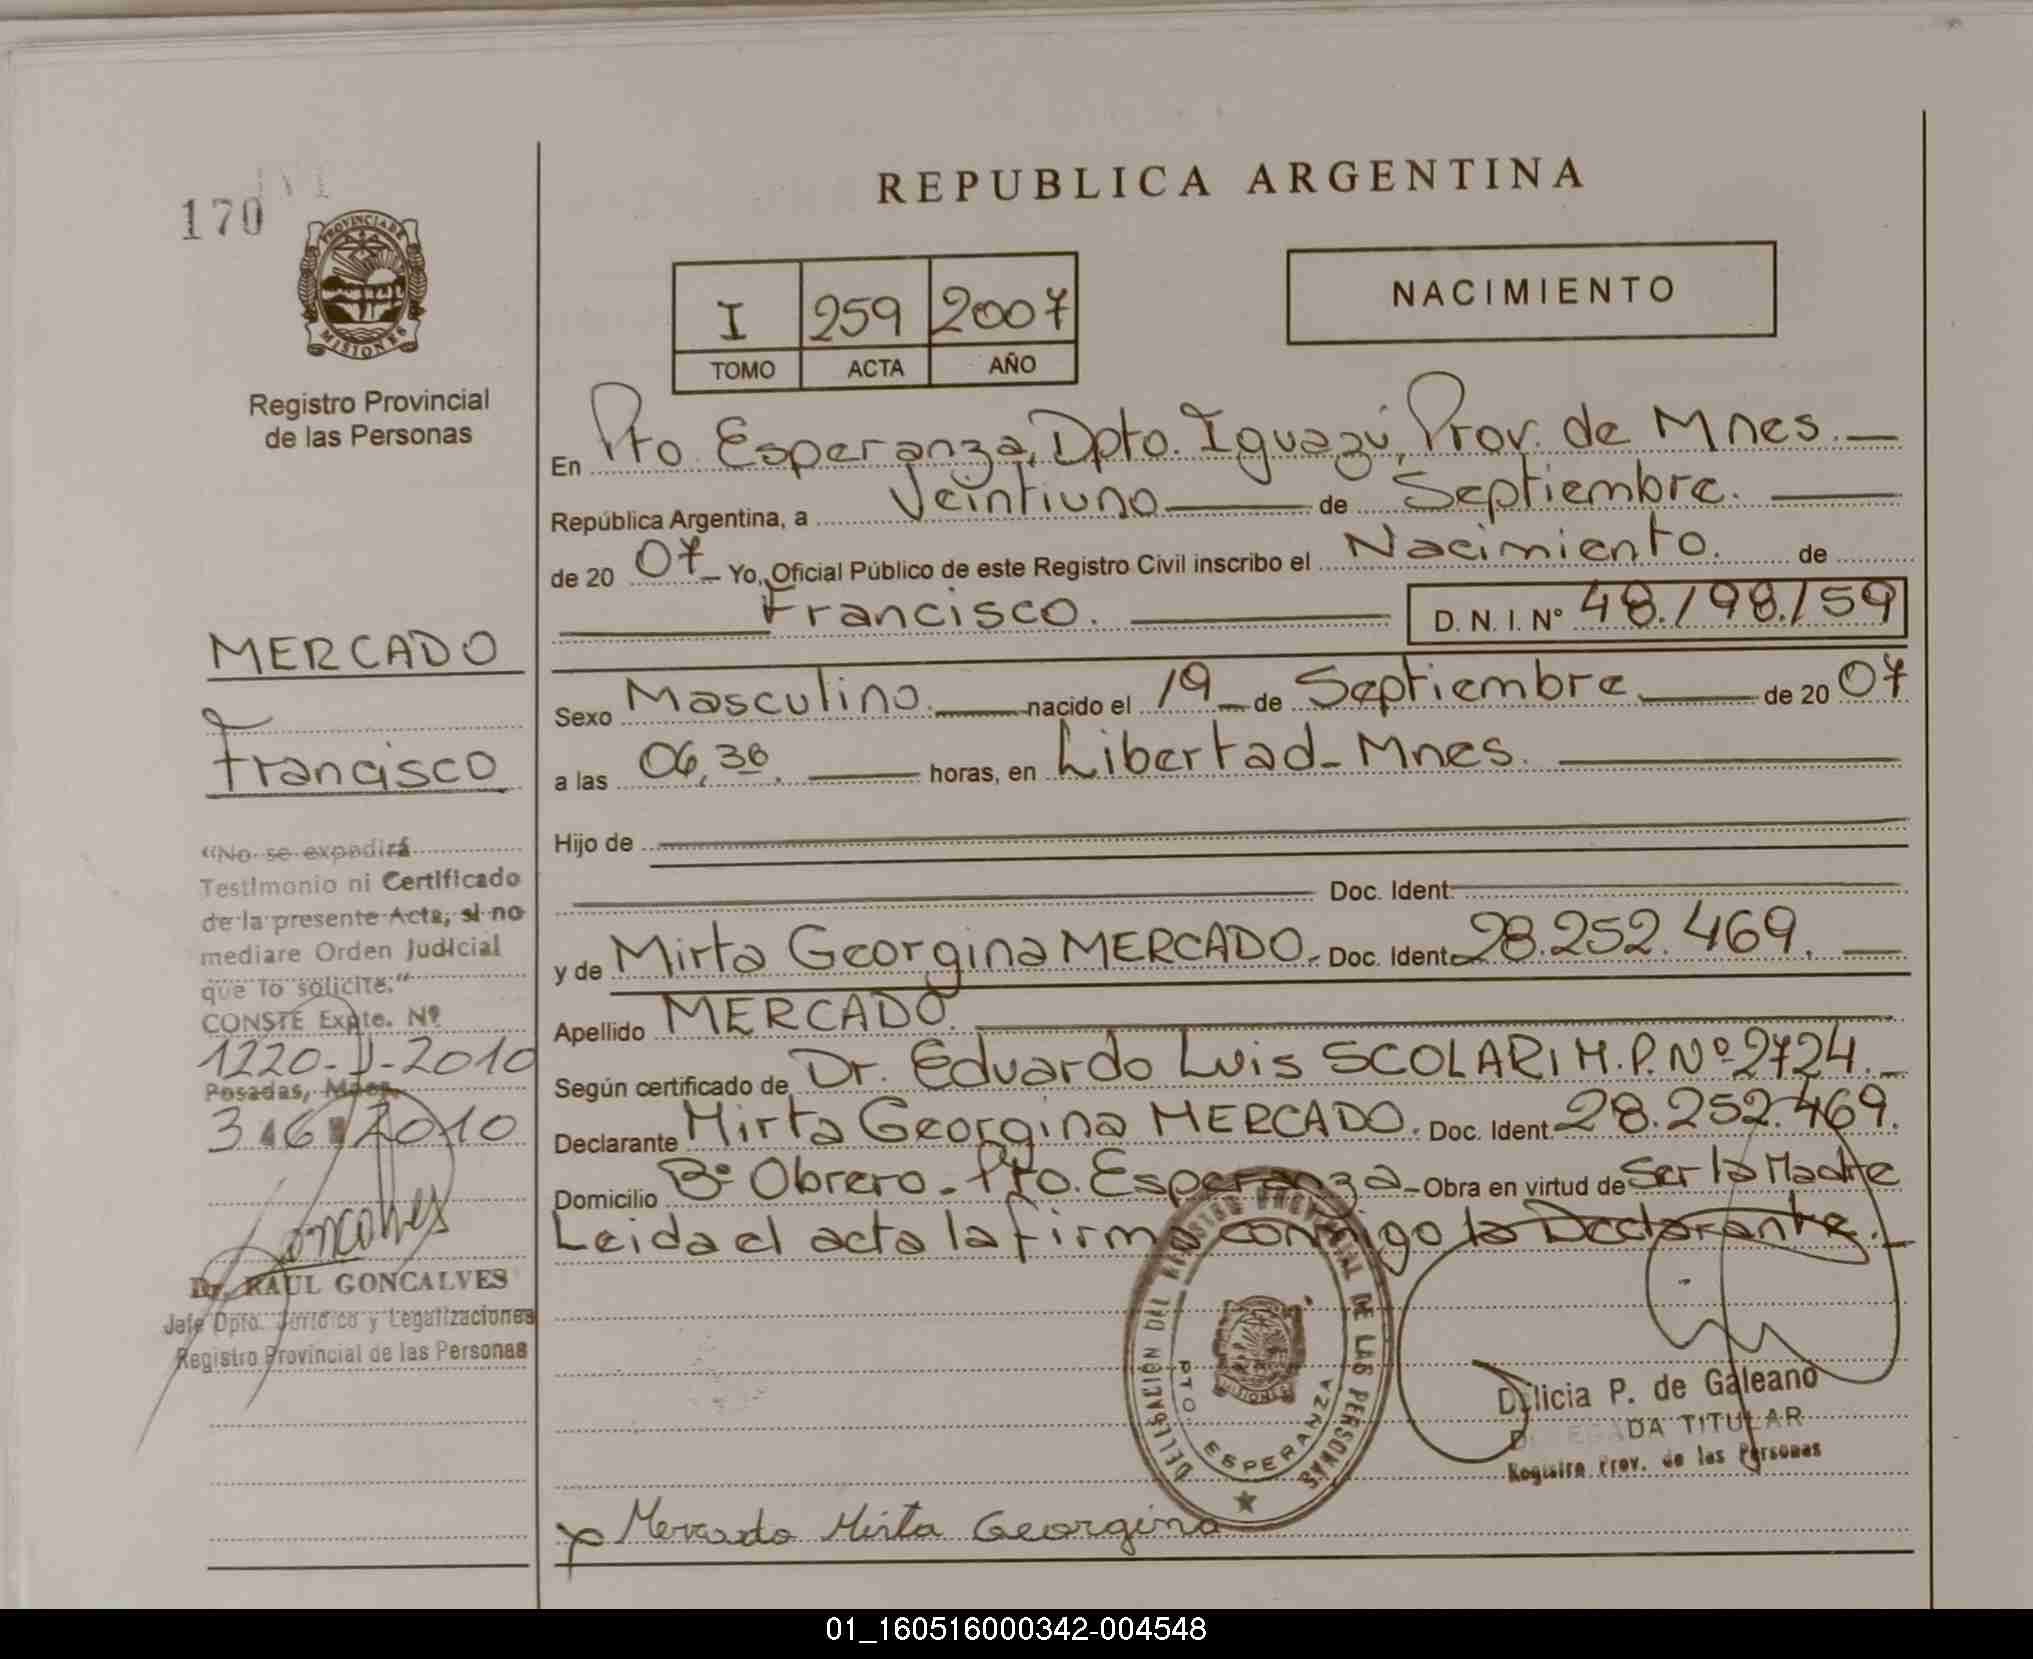 170
PROVINCIA DE
MISIONES
Registro Provincial
de las Personas
MERCADO
Francisco
"No se expedirá
Testimonio ni Certificado
de la presente Acta, si no
mediare Orden Judicial
que lo solicite."
CONSTE Expte. Nº
1220-J-2010
Posadas, Mnes.
3 6 2010
Goncalves
Dr. RAUL GONCALVES
Jefe Dpto. Jurídico y Legalizaciones
Registro Provincial de las Personas
REPUBLICA ARGENTINA
I 259 2007
TOMO ACTA AÑO
NACIMIENTO
En Pto. Esperanza, Dpto. Iguazú, Prov. de Mnes.
República Argentina, a Veintiuno de Septiembre.
de 20 07 Yo, Oficial Público de este Registro Civil inscribo el Nacimiento. de
Francisco. D. N. I. Nº 48.198.159
Sexo Masculino. nacido el 19 de Septiembre de 20 07
a las 06,30. horas, en Libertad-Mnes.
Hijo de
Doc. Ident.
y de Mirta Georgina MERCADO. Doc. Ident. 28.252.469.
Apellido MERCADO.
Según certificado de Dr. Eduardo Luis SCOLARI M.P.Nº 2724.
Declarante Mirta Georgina MERCADO. Doc. Ident. 28.252.469.
Domicilio Bº Obrero - Pto. Esperanza - Obra en virtud de Ser la Madre
Leida el acta la firma conmigo la Declarante.
DELEGACION DEL REGISTRO PROVINCIAL DE LAS PERSONAS
PTO. ESPERANZA
MISIONES
Delicia P. de Galeano
DELEGADA TITULAR
Registro Prov. de las Personas
Mercado Mirta Georgina
01_160516000342-004548